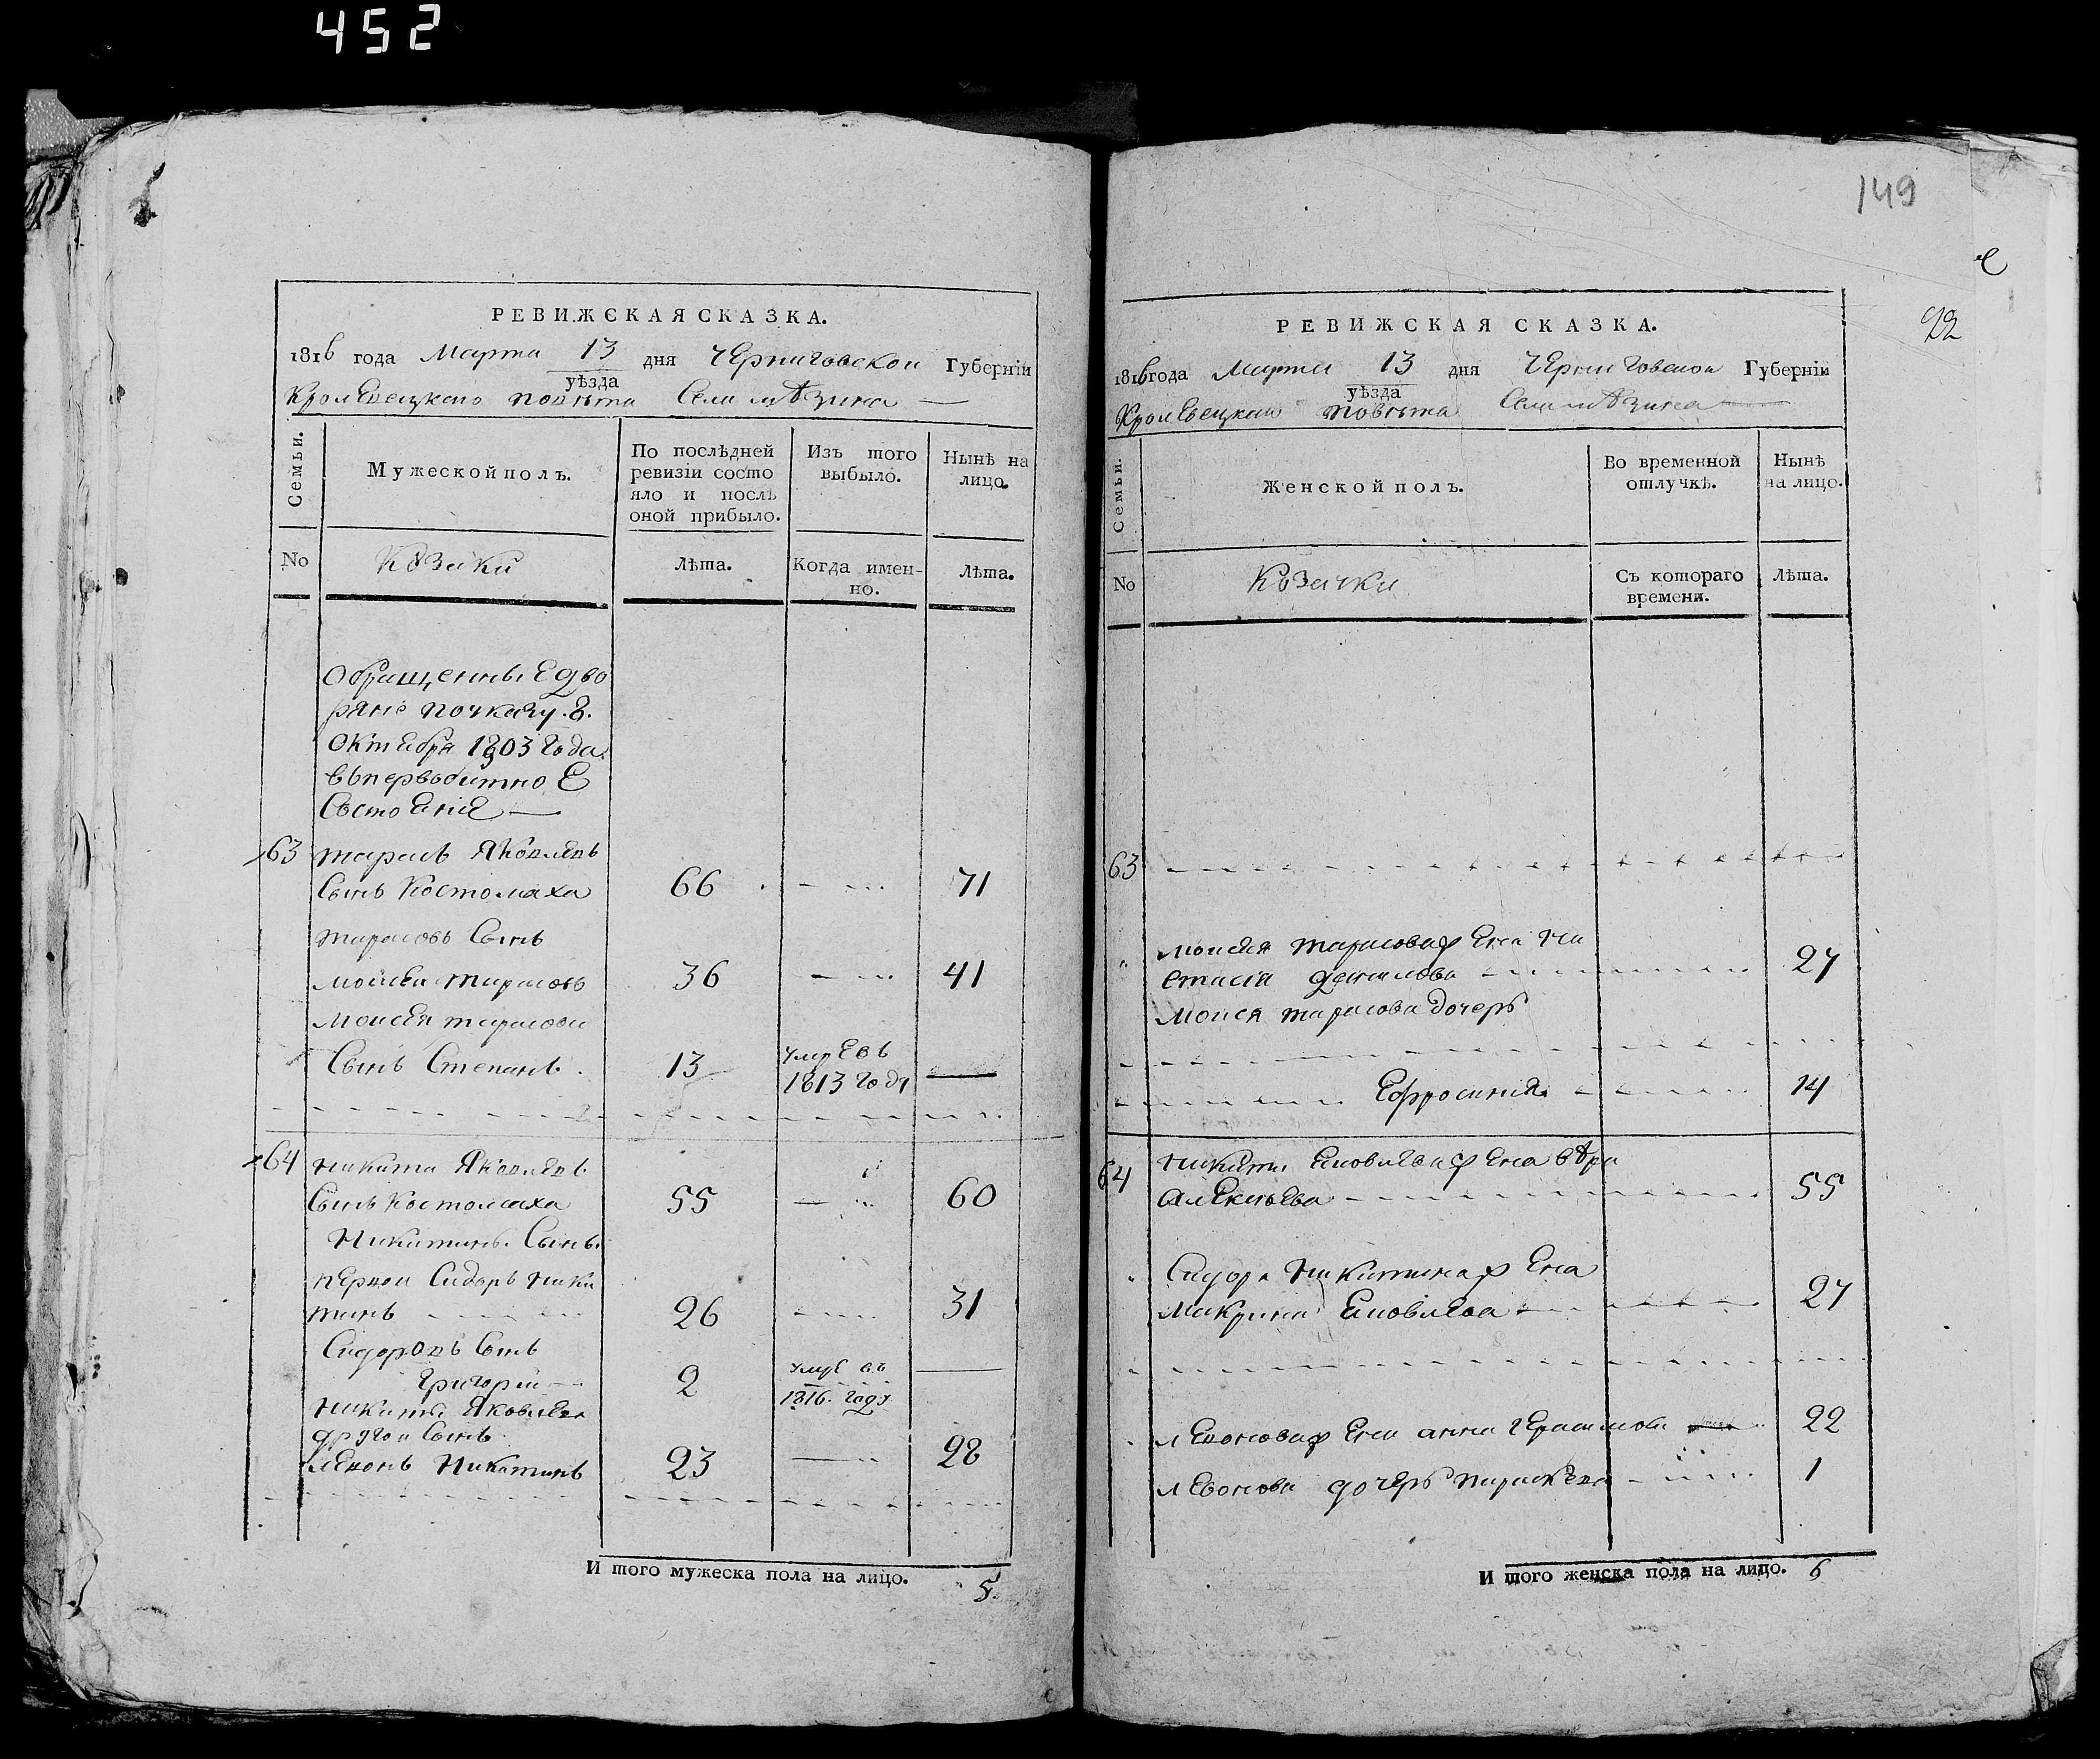 452
РЕВИЖСКАЯ СКАЗКА.
1816 года Марта 13 дня Черниговской Губерніи
уѣзда
Кролевецкаго повѣта Села мѣзина
Семьи.
Мужеской полъ.
По послѣдней ревизіи состо
яло и послѣ оной прибыло.
Изъ того выбыло.
Нынѣ на лицо.
No
Козаки
Лѣта.
Когда имен-
но.
Лѣта.
Обращенные дво
ряне по указу 8.
Октября 1803 года
въ первобитное
Состояніе
63 тарасъ Яковлевъ
Сынъ Костомаха 66 71
тарасовъ Сынъ
моисей тарасовъ 36 41
Моисея тарасова
Сынъ Степанъ 13 умре въ
1813 году
64 никита Яковлевъ
Сынъ Костомаха 55 60
Никитинъ Сынъ
первой Сидоръ ники
тинъ 26 31
Сидоровъ Сынъ
Григорій 2 умре въ
1816. году
никиты Яковлева
другой Сынъ
левонъ Никитинъ 23 28
И того мужеска пола на лицо. 5
149
22
РЕВИЖСКАЯ СКАЗКА.
1816 года Марта 13 дня Черниговской Губерніи
уѣзда
Кролевецкаго повѣта Села мѣзина
Семьи.
Женской полъ.
Во временной
отлучкѣ.
Нынѣ
на лицо.
No
Козачки
Съ котораго
времени.
Лѣта.
63
моисея тарасова жена на
стасія данилова 27
Моисея тарасова дочеръ
Ефросинія 14
64 никиты Яковлева жена вѣра
алексѣева 55
Сидора никитина жена
макрина Яковлева 27
левонова жена анна герасимова 22
левонова дочеръ параскева 1
И того женска пола на лицо. 6